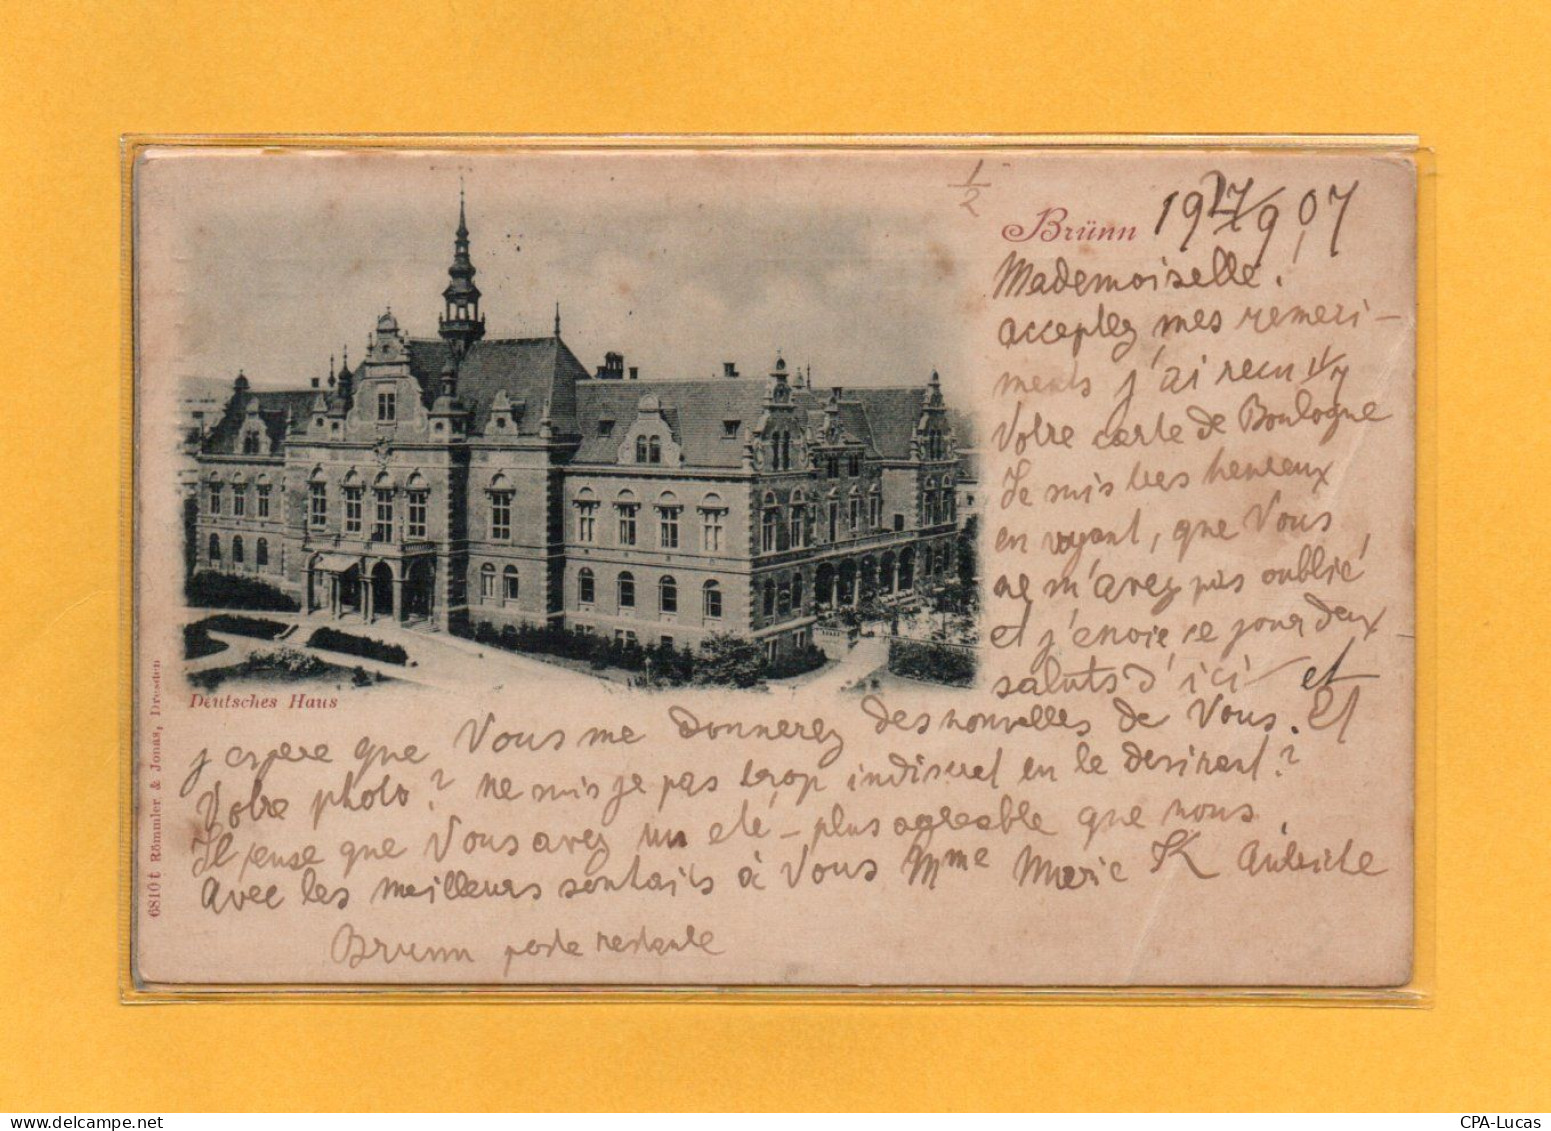 1/2
Brünn 1927/9 07
Mademoiselle!
acceptez mes remerci-
ments j'ai recu
Votre carte de Boulogne
Je suis tres heureux
en voyant, que Vous
ne m'avez pas oublié
et j'envoie ce jour deux
saluts d'ici et
j'espere que Vous me Donnerez des nouvelles de Vous. et
Votre photo? ne suis je pas trop indiscret en le desirant?
Il pense que Vous avez un eté - plus agreable que nous.
Avec les meilleurs souhaits à Vous Mme Marie K Autriche
Brunn poste restante
Deutsches Haus
6810 t Römmler & Jonas, Dresden
CPA-Lucas